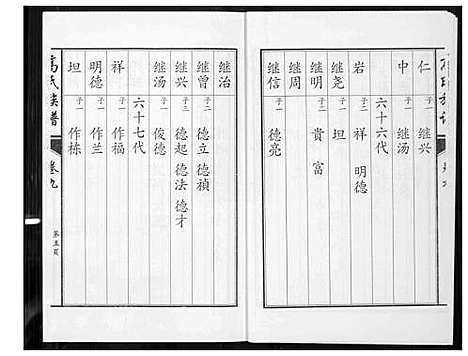 仁 子一 继兴
中 子一 继汤
六十六代
岩 子二 祥 明德
继尧 子一 坦
继明 子二 贵 富
继周
继信 子一 德亮
继治
继曾 子二 德立 德祯
继兴 子三 德起 德法 德才
继汤 子一 俊德
六十七代
祥 子一 作福
明德 子一 作兰
坦 子一 作栋
氏族谱 卷九 第五页